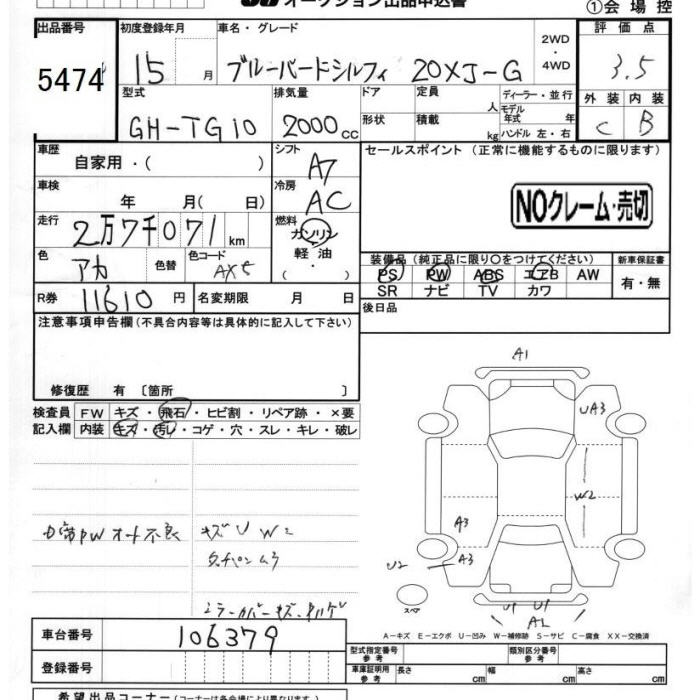 オークション出品申込書
①会場控
出品番号 初度登録年月 車名・グレード 2WD・4WD 評価点
5474 15 月 ブルーバードシルフィ 20XJ-G 3.5
型式 排気量 ドア 定員 人 ディーラー・並行 外装 内装
GH-TG10 2000cc 形状 積載 kg モデル年式 年 ハンドル 左・右 C B
車歴 自家用・( ) シフト A7 セールスポイント (正常に機能するものに限ります)
車検 年 月(日) 冷房 AC
NOクレーム・売切
走行 2万7千071km 燃料 ガソリン
軽油
( ・ )
色 アカ 色替 色コード AX5
装備品 (純正品に限り○をつけてください) 新車保証書
PS PW ABS エアB AW 有・無
SR ナビ TV カワ
R券 11610円 名変期限 月 日 後日品
注意事項申告欄 (不具合内容等は具体的に記入して下さい)
修復歴 有 〔箇所 〕
検査員 FW キズ・飛石・ヒビ割・リペア跡・×要
記入欄 内装 キズ・汚レ・コゲ・穴・スレ・キレ・破レ
A1
UA3
W2
A3
A3
U2
スペア
U1 U1
PWオート不良 キズ U W2
ミラーカバーキズ
A-キズ E-エクボ U-凹み W-補修跡 S-サビ C-腐食 XX-交換済
車台番号 106379
登録番号
型式指定番号 参考 類別区分番号 参考
車庫証明用 参考 長さ cm 幅 cm 高さ cm
希望出品コーナー (コーナーは各会場により異なります。)